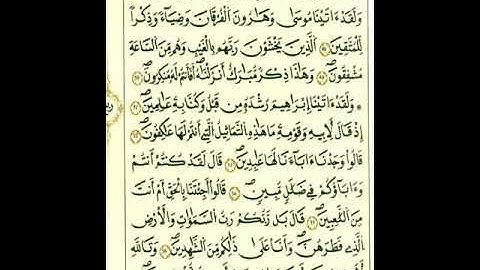 وَلَقَدْ ءَاتَيْنَا مُوسَىٰ وَهَٰرُونَ ٱلْفُرْقَانَ وَضِيَآءً وَذِكْرًا
لِّلْمُتَّقِينَ ٱلَّذِينَ يَخْشَوْنَ رَبَّهُم بِٱلْغَيْبِ وَهُم مِّنَ ٱلسَّاعَةِ
مُشْفِقُونَ وَهَٰذَا ذِكْرٌ مُّبَارَكٌ أَنزَلْنَٰهُ أَفَأَنتُمْ لَهُۥ مُنكِرُونَ
وَلَقَدْ ءَاتَيْنَآ إِبْرَٰهِيمَ رُشْدَهُۥ مِن قَبْلُ وَكُنَّا بِهِۦ عَٰلِمِينَ
إِذْ قَالَ لِأَبِيهِ وَقَوْمِهِۦ مَا هَٰذِهِ ٱلتَّمَاثِيلُ ٱلَّتِىٓ أَنتُمْ لَهَا عَٰكِفُونَ
قَالُوا۟ وَجَدْنَآ ءَابَآءَنَا لَهَا عَٰبِدِينَ قَالَ لَقَدْ كُنتُمْ أَنتُمْ
وَءَابَآؤُكُمْ فِى ضَلَٰلٍ مُّبِينٍ قَالُوٓا۟ أَجِئْتَنَا بِٱلْحَقِّ أَمْ أَنتَ
مِنَ ٱللَّٰعِبِينَ قَالَ بَل رَّبُّكُمْ رَبُّ ٱلسَّمَٰوَٰتِ وَٱلْأَرْضِ
ٱلَّذِى فَطَرَهُنَّ وَأَنَا۠ عَلَىٰ ذَٰلِكُم مِّنَ ٱلشَّٰهِدِينَ وَتَٱللَّهِ